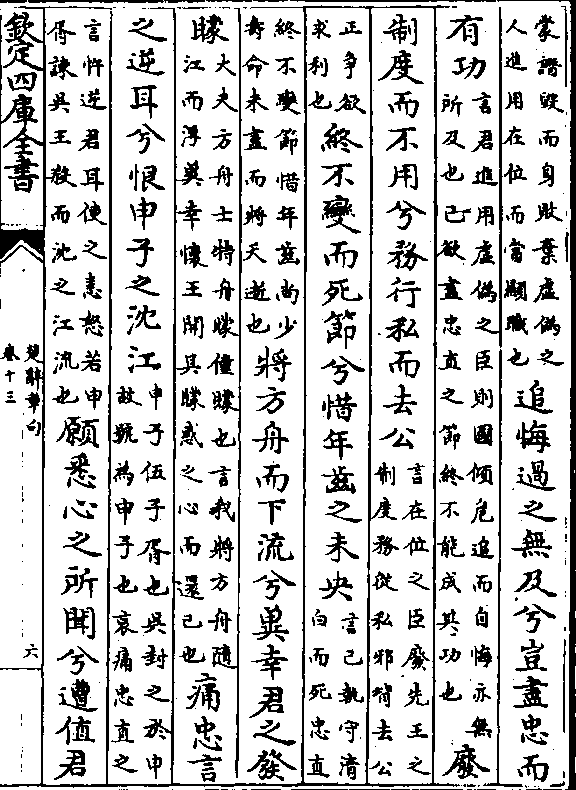 掌譖毀而身敗棄虛偽之
人進用在位而當顯職也
追悔過之無及兮豈盡忠而
有功
言君進用虛偽之臣則國傾危追而自悔亦無
所及也已欲盡忠直之節終不能成其功也
廢
制度而不用兮務行私而去公
言在位之臣廢先王之
制度務從私邪背去公
正爭欲
求利也
終不變而死節兮惜年齒之未央
言已執守清
白而死忠直
終不變節惜年齒尚少
壽命未盡而將夭逝也
將方舟而下流兮冀幸君之發
矇
大夫方舟士特舟矇僮矇也言我將方舟隨
江而浮冀幸懷王開其矇惑之心而還己也
痛忠言
之逆耳兮恨申子之沈江
申子伍子胥也吳封之於申
故號為申子也哀痛忠直之
言忤逆君耳使之恚怒若申
胥諫吳王殺而沈之江流也
願悉心之所聞兮遭值君
欽定四庫全書
楚辭章句
卷十三
六